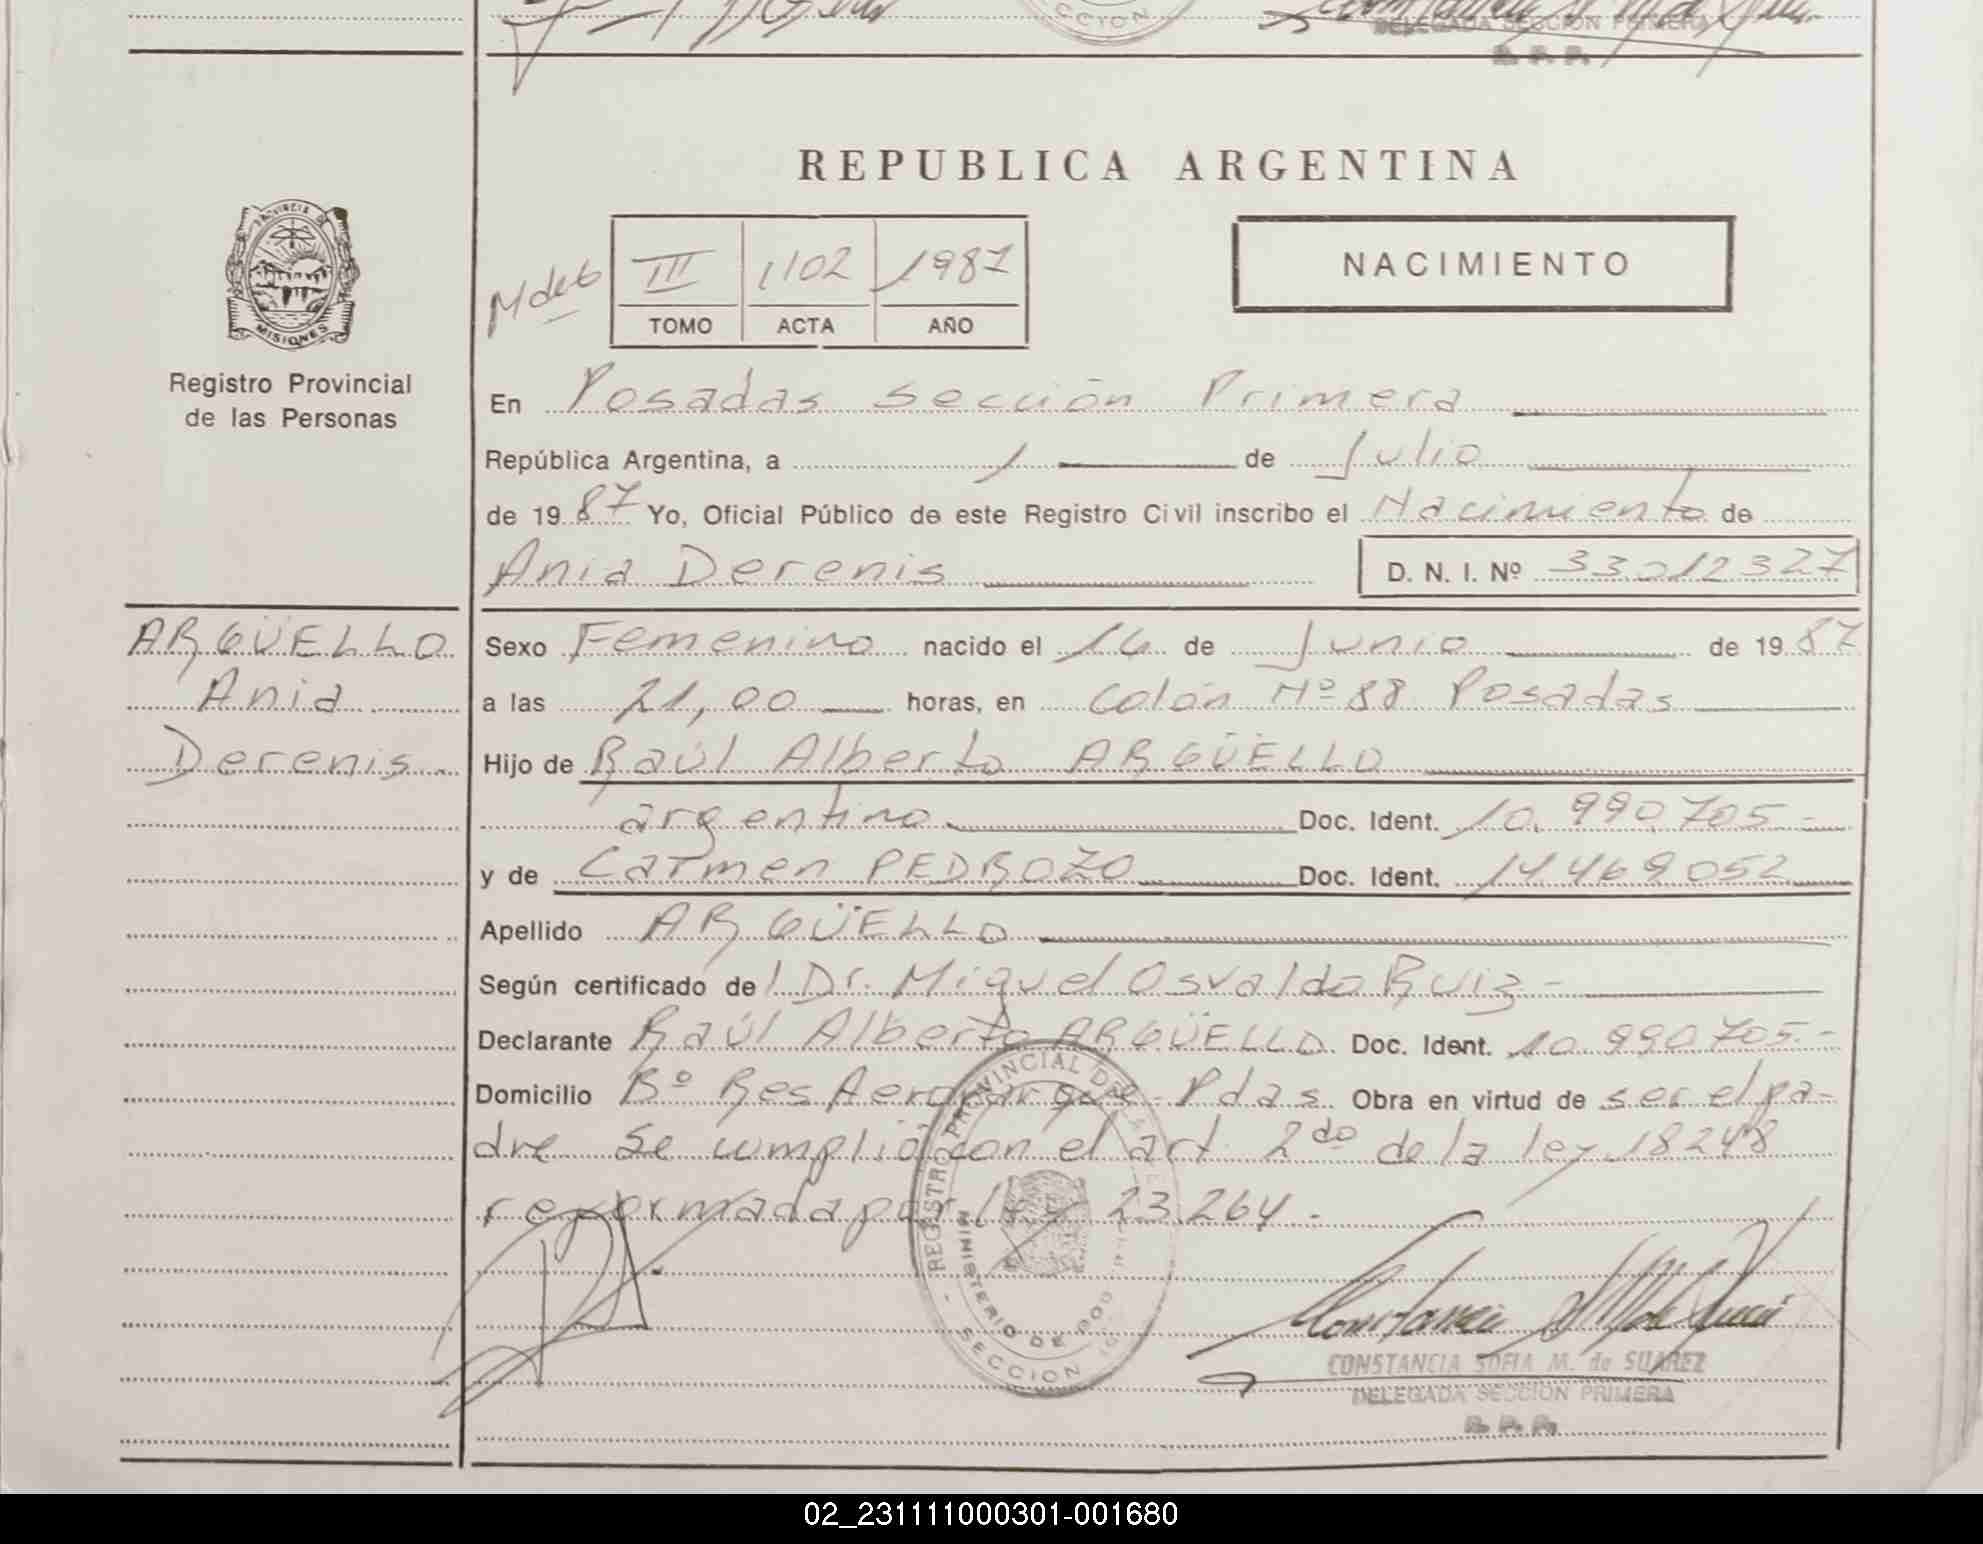 DELEGADA SECCION PRIMERA
R. P. P.
REPUBLICA ARGENTINA
PROVINCIA DE
MISIONES
Registro Provincial
de las Personas
Mdeb
III 1102 1987
TOMO ACTA AÑO
NACIMIENTO
En Posadas Sección Primera
República Argentina, a 1 de Julio
de 1987 Yo, Oficial Público de este Registro Civil inscribo el Nacimiento de
Ania Derenis D. N. I. Nº 33012327
ARGÜELLO
Ania
Derenis
Sexo Femenino nacido el 14 de Junio de 1987
a las 21,00 horas, en Colón Nº 88 Posadas
Hijo de Raúl Alberto ARGÜELLO
argentino Doc. Ident. 10.990.705-
y de Carmen PEDROZO Doc. Ident. 14.469.052
Apellido ARGÜELLO
Según certificado del Dr. Miguel Osvaldo Ruiz-
Declarante Raúl Alberto ARGÜELLO Doc. Ident. 10.990.705.-
Domicilio Bº Res Aeroparque-Pdas. Obra en virtud de ser el pa-
dre Se cumplió con el art. 2do de la ley 18248
reformada por ley 23.264.
REGISTRO PROVINCIAL DE
MINISTERIO DE
SECCION
CONSTANCIA SOFIA M. de SUAREZ
DELEGADA SECCION PRIMERA
R. P. P.
02_231111000301-001680